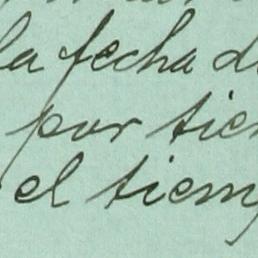 la fecha d
por tie
el tiem